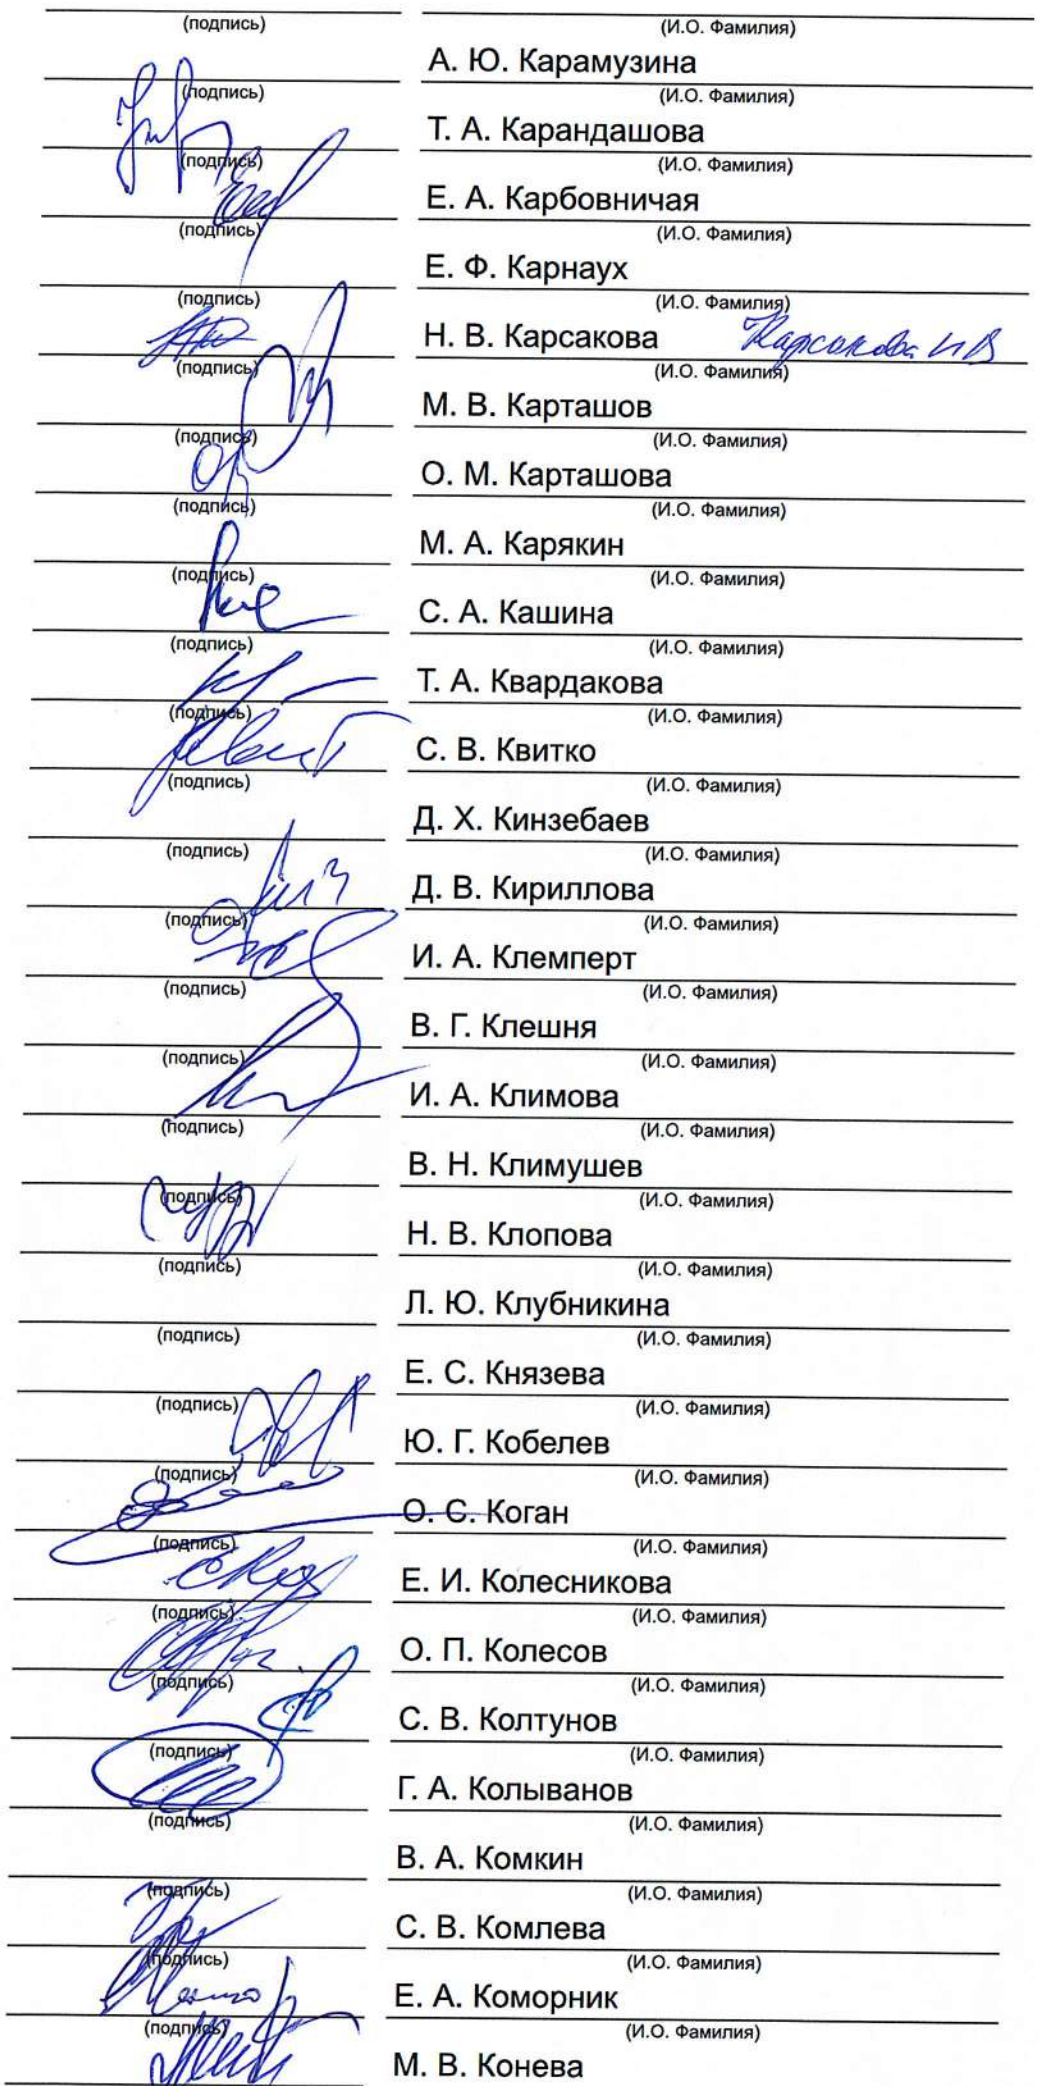 (подпись) (И.О. Фамилия)
А. Ю. Карамузина
(подпись) (И.О. Фамилия)
Т. А. Карандашова
(подпись) (И.О. Фамилия)
Е. А. Карбовничая
(подпись) (И.О. Фамилия)
Е. Ф. Карнаух
(подпись) (И.О. Фамилия)
Н. В. Карсакова Карсакова Н В
(подпись) (И.О. Фамилия)
М. В. Карташов
(подпись) (И.О. Фамилия)
О. М. Карташова
(подпись) (И.О. Фамилия)
М. А. Карякин
(подпись) (И.О. Фамилия)
С. А. Кашина
(подпись) (И.О. Фамилия)
Т. А. Квардакова
(подпись) (И.О. Фамилия)
С. В. Квитко
(подпись) (И.О. Фамилия)
Д. Х. Кинзебаев
(подпись) (И.О. Фамилия)
Д. В. Кириллова
(подпись) (И.О. Фамилия)
И. А. Клемперт
(подпись) (И.О. Фамилия)
В. Г. Клешня
(подпись) (И.О. Фамилия)
И. А. Климова
(подпись) (И.О. Фамилия)
В. Н. Климушев
(подпись) (И.О. Фамилия)
Н. В. Клопова
(подпись) (И.О. Фамилия)
Л. Ю. Клубникина
(подпись) (И.О. Фамилия)
Е. С. Князева
(подпись) (И.О. Фамилия)
Ю. Г. Кобелев
(подпись) (И.О. Фамилия)
О. С. Коган
(подпись) (И.О. Фамилия)
Е. И. Колесникова
(подпись) (И.О. Фамилия)
О. П. Колесов
(подпись) (И.О. Фамилия)
С. В. Колтунов
(подпись) (И.О. Фамилия)
Г. А. Колыванов
(подпись) (И.О. Фамилия)
В. А. Комкин
(подпись) (И.О. Фамилия)
С. В. Комлева
(подпись) (И.О. Фамилия)
Е. А. Коморник
(подпись) (И.О. Фамилия)
М. В. Конева